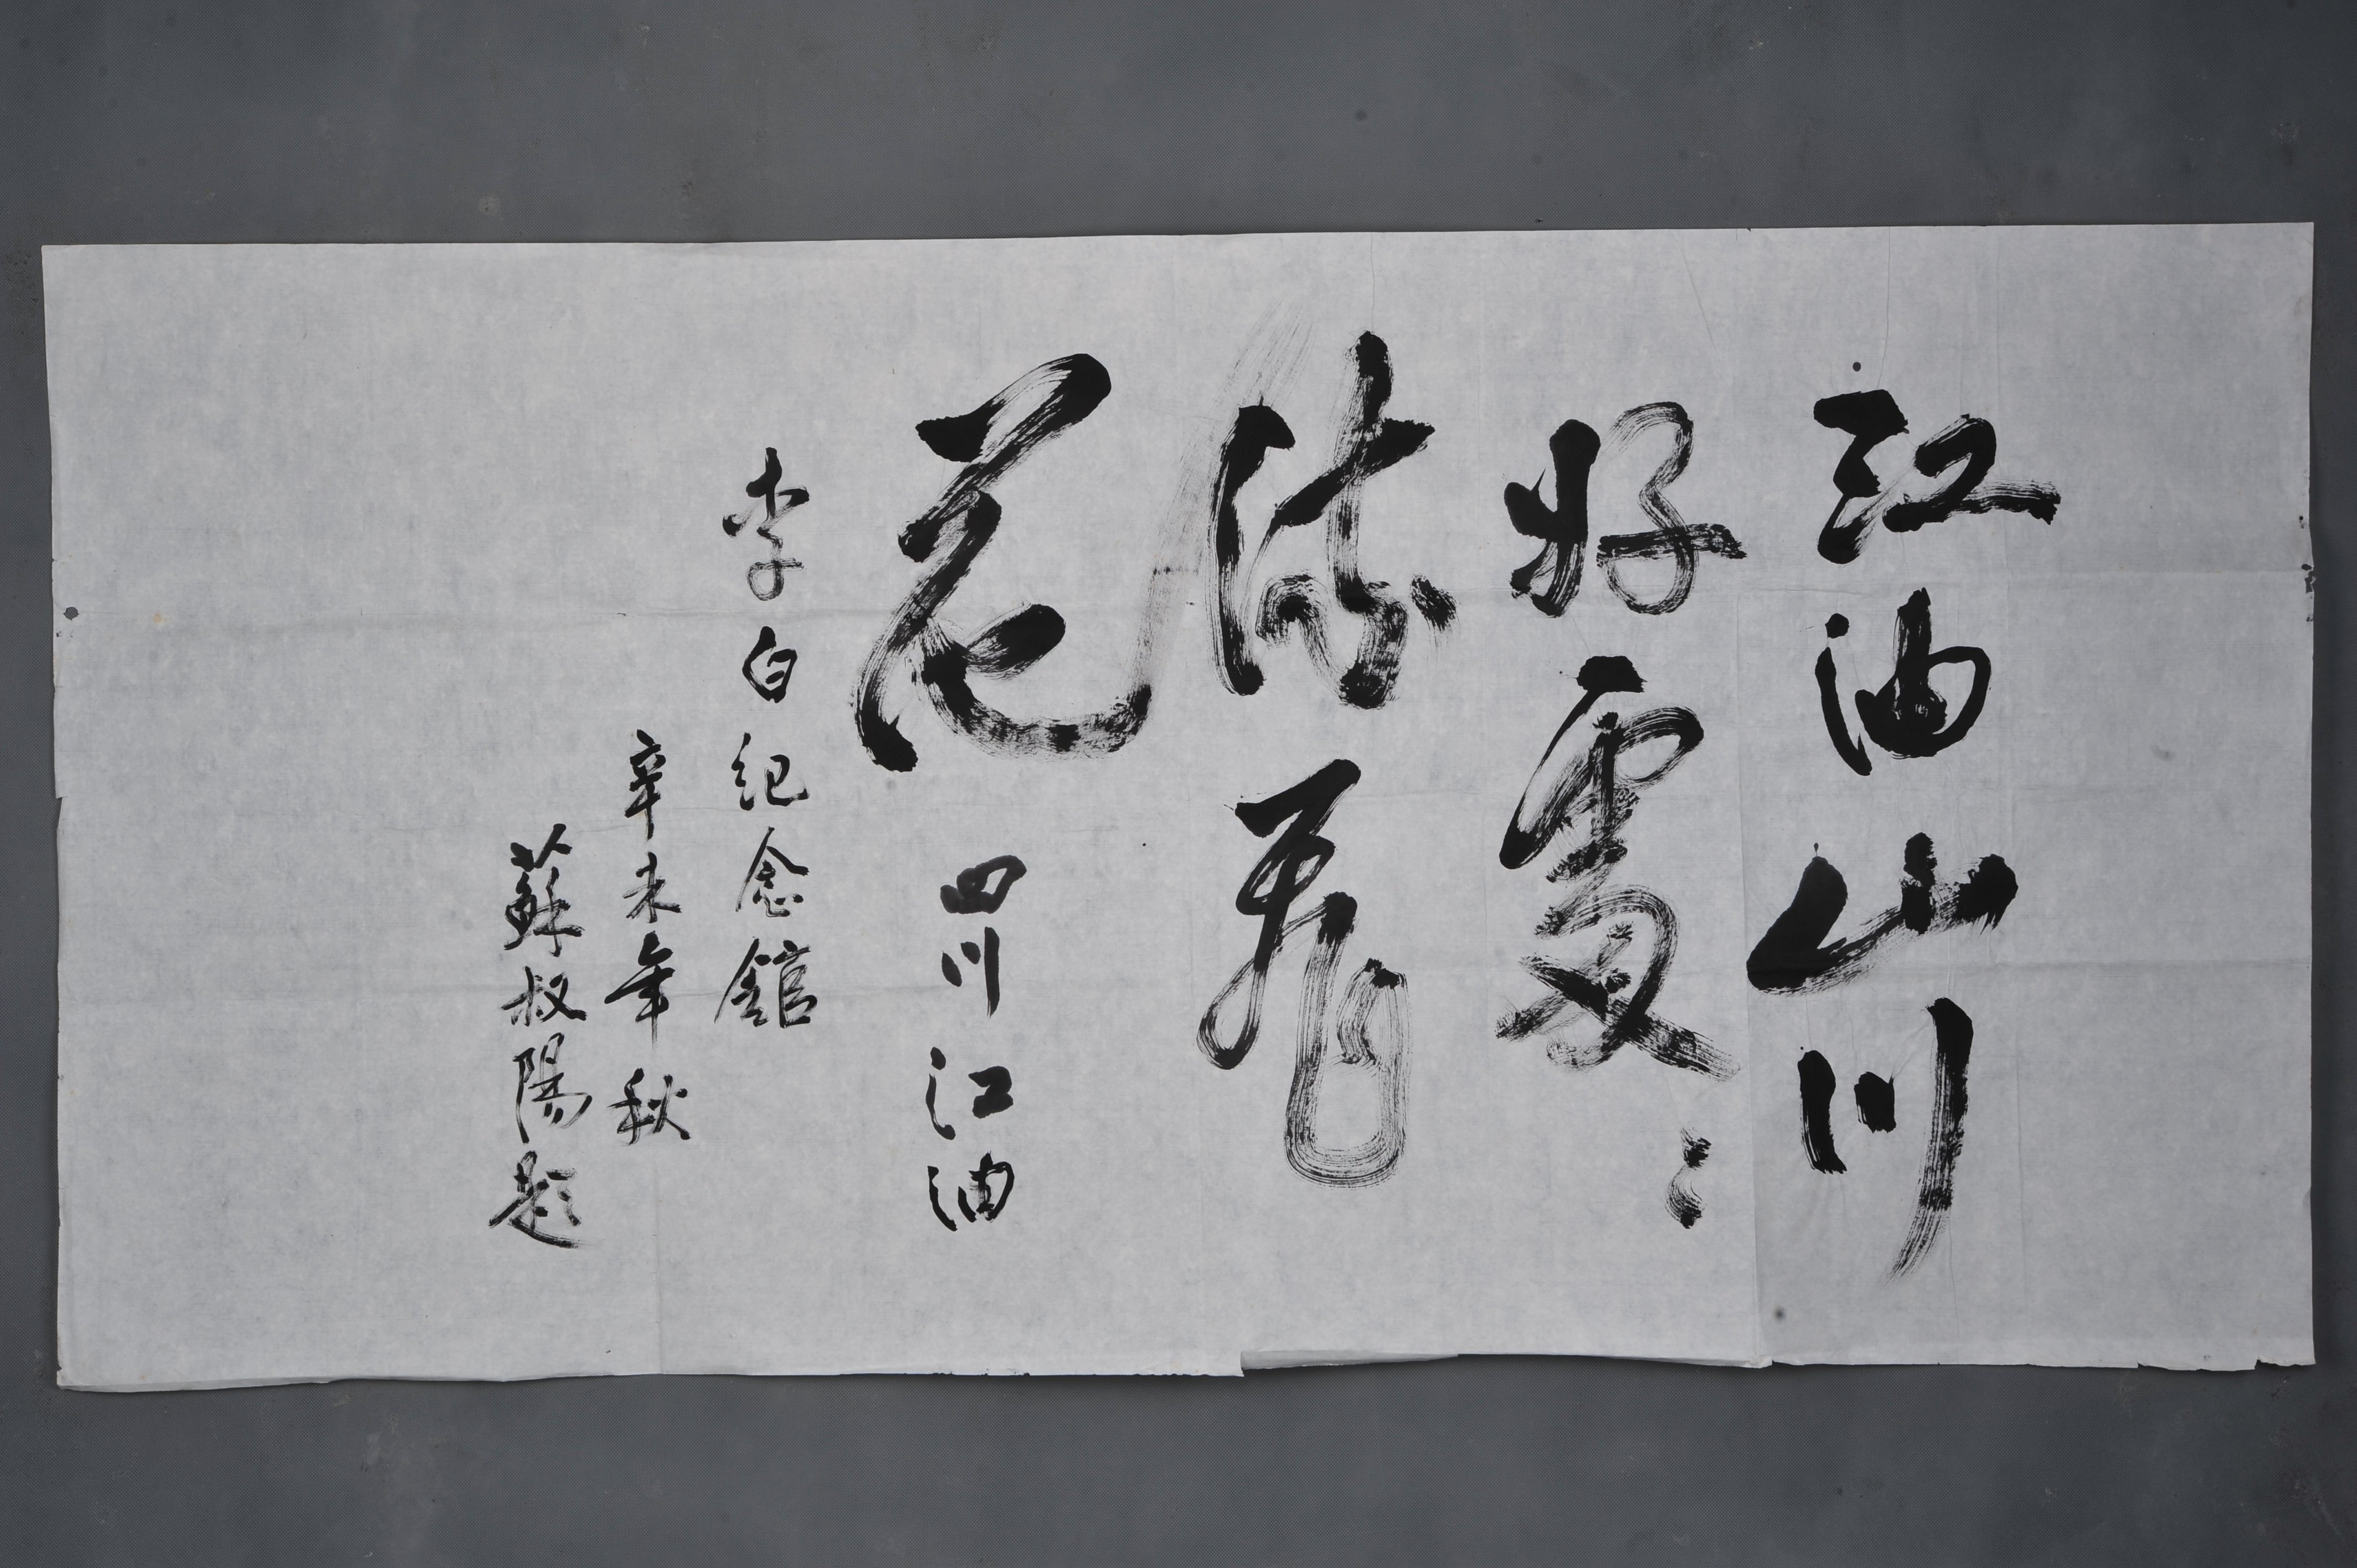 江油山川
好處〻
花 四川江油
李白紀念館
辛未年秋
蘇叔陽題